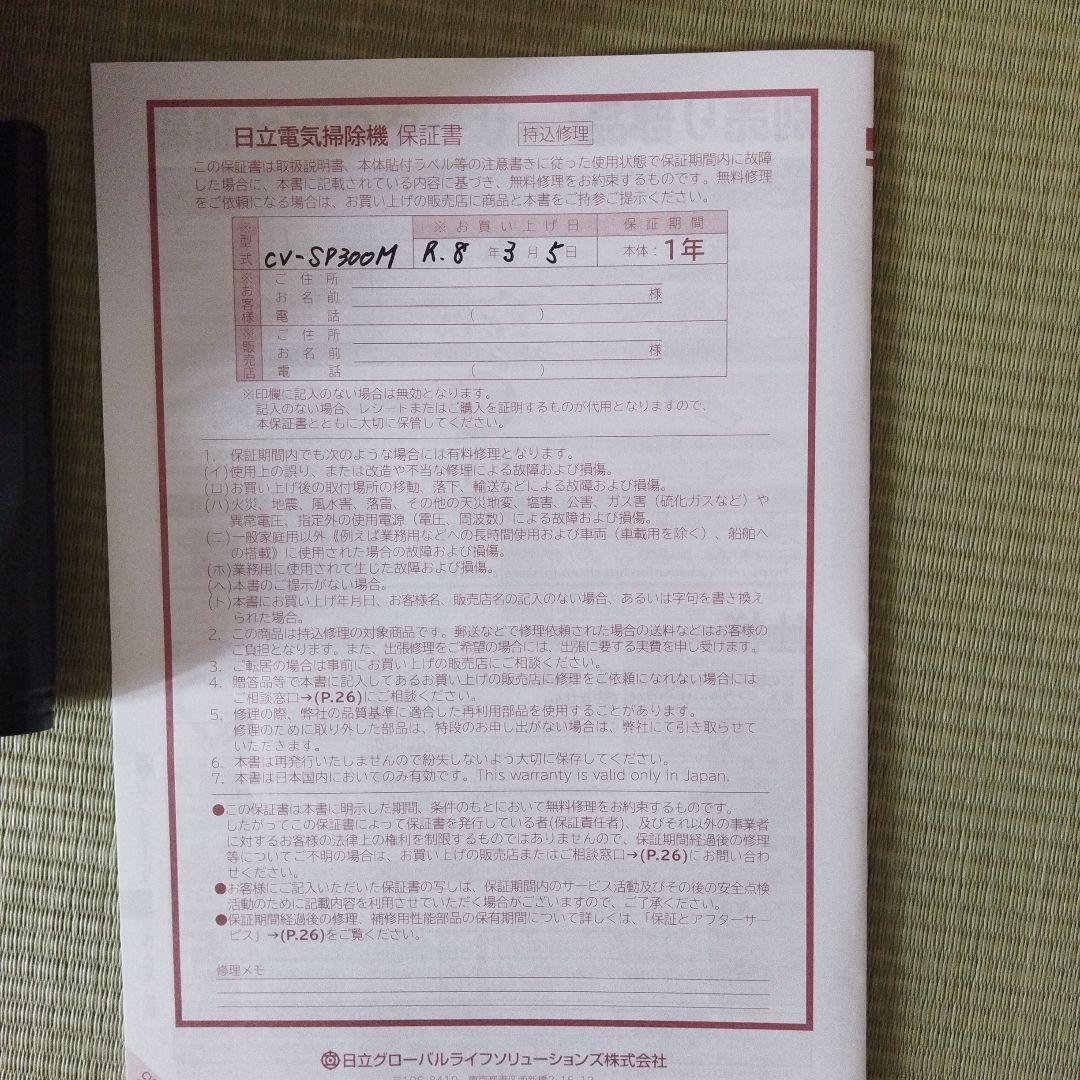 日立電気掃除機 保証書 持込修理
この保証書は取扱説明書、本体貼付ラベル等の注意書きに従った使用状態で保証期間内に故障
した場合に、本書に記載されている内容に基づき、無料修理をお約束するものです。無料修理
をご依頼になる場合は、お買い上げの販売店に商品と本書をご持参ご提示ください。
※型式 CV-SP300M
※お買い上げ日 R.8年3月5日
保証期間 本体:1年
※お客様
ご住所
お名前 様
電話 ( )
※販売店
ご住所
お名前 様
電話 ( )
※印欄に記入のない場合は無効となります。
記入のない場合、レシートまたはご購入を証明するものが代用となりますので、
本保証書とともに大切に保管してください。
1. 保証期間内でも次のような場合には有料修理となります。
(イ)使用上の誤り、または改造や不当な修理による故障および損傷。
(ロ)お買い上げ後の取付場所の移動、落下、輸送などによる故障および損傷。
(ハ)火災、地震、風水害、落雷、その他の天災地変、塩害、公害、ガス害(硫化ガスなど)や
異常電圧、指定外の使用電源(電圧、周波数)による故障および損傷。
(ニ)一般家庭用以外《例えば業務用などへの長時間使用および車両(車載用を除く)、船舶へ
の搭載》に使用された場合の故障および損傷。
(ホ)業務用に使用されて生じた故障および損傷。
(ヘ)本書のご提示がない場合。
(ト)本書にお買い上げ年月日、お客様名、販売店名の記入のない場合、あるいは字句を書き換え
られた場合。
2. この商品は持込修理の対象商品です。郵送などで修理依頼された場合の送料などはお客様の
ご負担となります。また、出張修理をご希望の場合には、出張に要する実費を申し受けます。
3. ご転居の場合は事前にお買い上げの販売店にご相談ください。
4. 贈答品等で本書に記入してあるお買い上げの販売店に修理をご依頼になれない場合には
ご相談窓口→(P.26)にご相談ください。
5. 修理の際、弊社の品質基準に適合した再利用部品を使用することがあります。
修理のために取り外した部品は、特段のお申し出がない場合は、弊社にて引き取らせて
いただきます。
6. 本書は再発行いたしませんので紛失しないよう大切に保存してください。
7. 本書は日本国内においてのみ有効です。This warranty is valid only in Japan.
●この保証書は本書に明示した期間、条件のもとにおいて無料修理をお約束するものです。
したがってこの保証書によって保証書を発行している者(保証責任者)、及びそれ以外の事業者
に対するお客様の法律上の権利を制限するものではありませんので、保証期間経過後の修理
等についてご不明の場合は、お買い上げの販売店またはご相談窓口→(P.26)にお問い合わ
せください。
●お客様にご記入いただいた保証書の写しは、保証期間内のサービス活動及びその後の安全点検
活動のために記載内容を利用させていただく場合がございますので、ご了承ください。
●保証期間経過後の修理、補修用性能部品の保有期間について詳しくは、「保証とアフターサー
ビス」→(P.26)をご覧ください。
修理メモ
日立グローバルライフソリューションズ株式会社